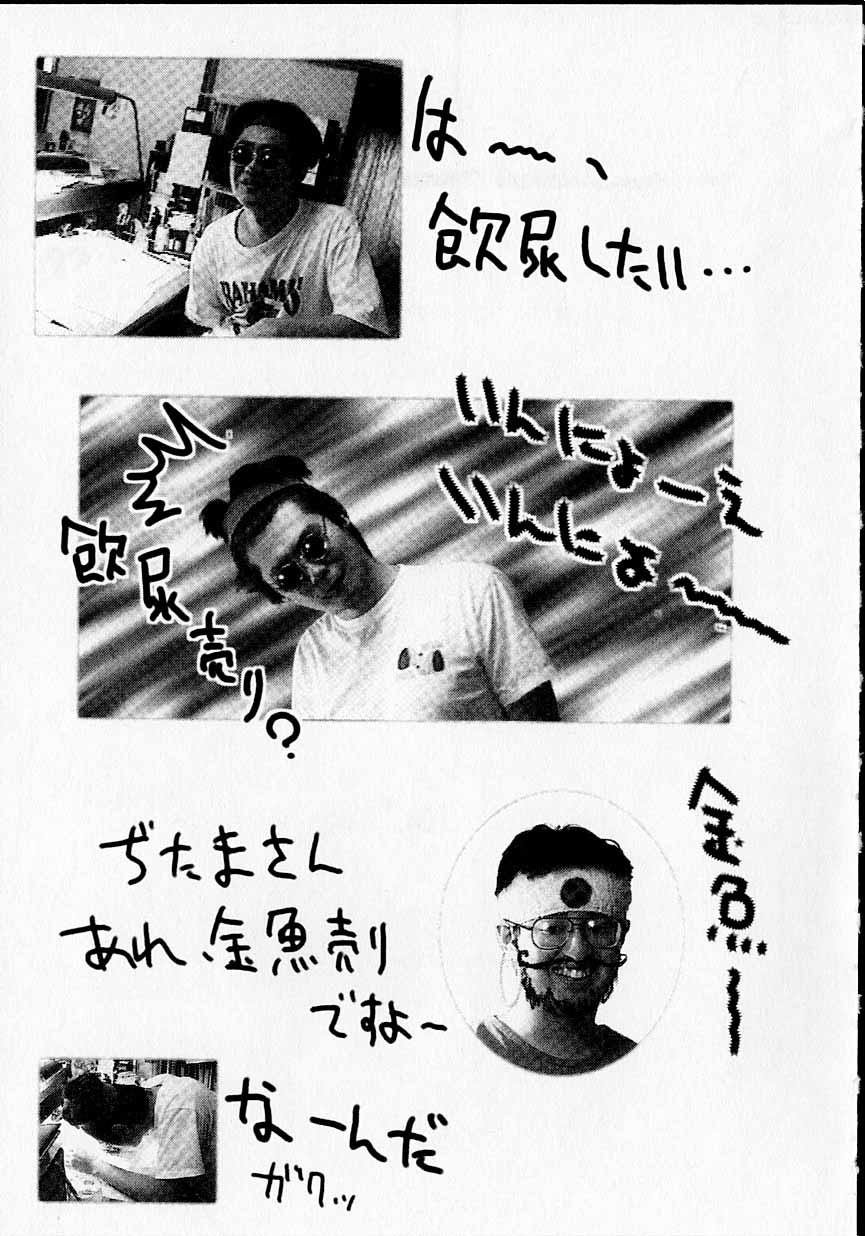 はー、
飲尿したい…
RAHAMS
いんにょーえ
いんにょ〜
飲尿売り?
金魚〜
ぢたまさん
あれ、金魚売り
ですよ〜
なーんだ
ガクッ